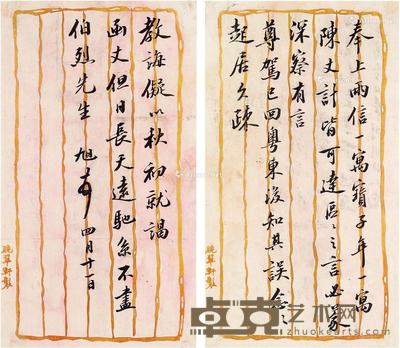 奉上兩信一寓寶子年一寓
陳丈計皆可達區々之言必蒙
深察有言
尊駕已回粵東後知其誤念之
起居久疎
晚翠軒製
教誨儗以秋初就謁
函丈但日長天遠馳系不盡
伯烈先生 旭 四月十一日
晚翠軒製
卓克艺术网
www.zhuokearts.com